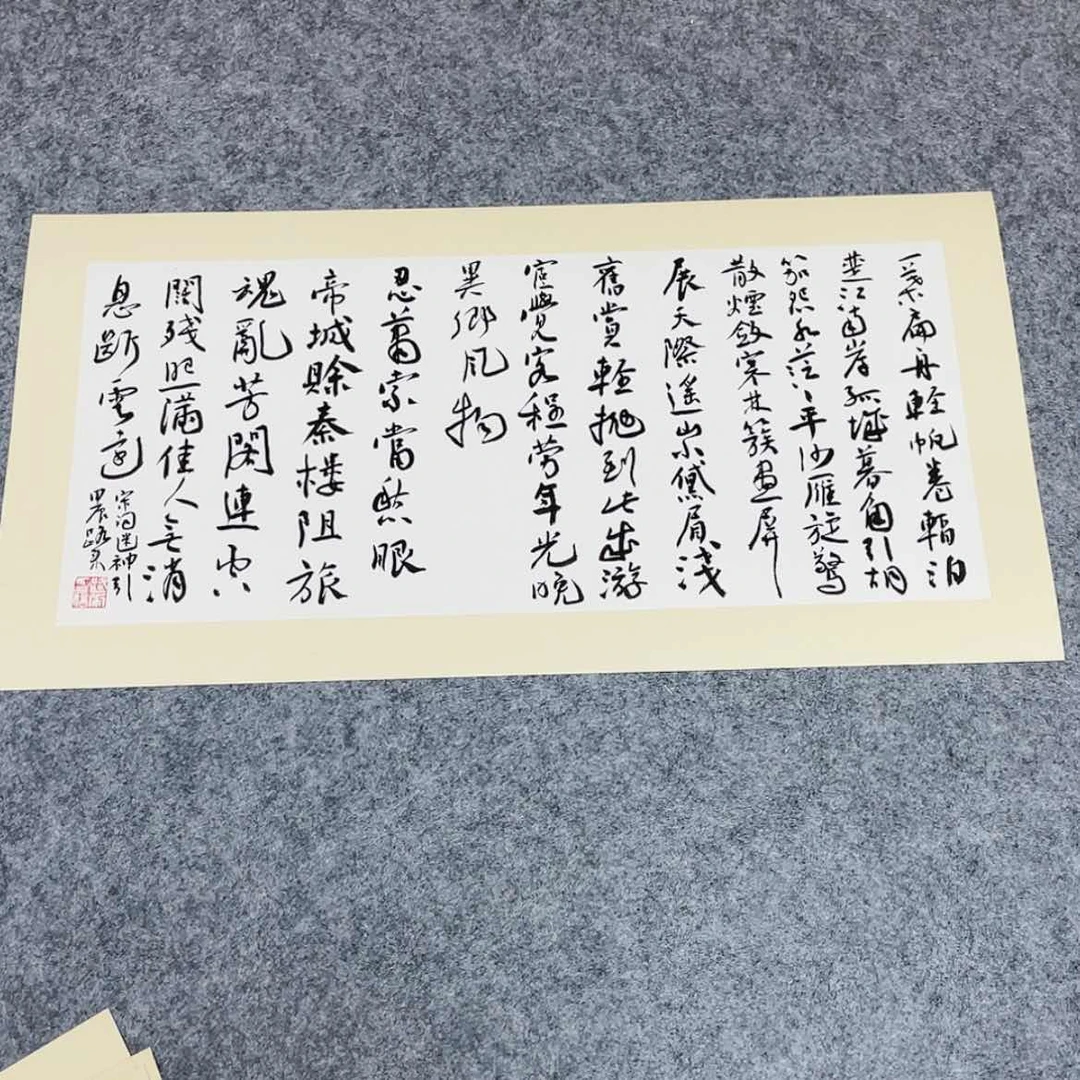 一葉扁舟輕帆卷暫泊
楚江南岸孤城暮角引胡
笳怨水茫〻平沙雁旋驚
散煙斂寒林簇畫屏
展天際遙山小黛眉淺
舊賞輕拋到此成游
宦覺客程勞年光晚
異鄉風物
忍蕭索當愁眼
帝城賒秦楼阻旅
魂亂芳連空
闊殘照滿佳人無消
息斷雲遠
宋词迷神引